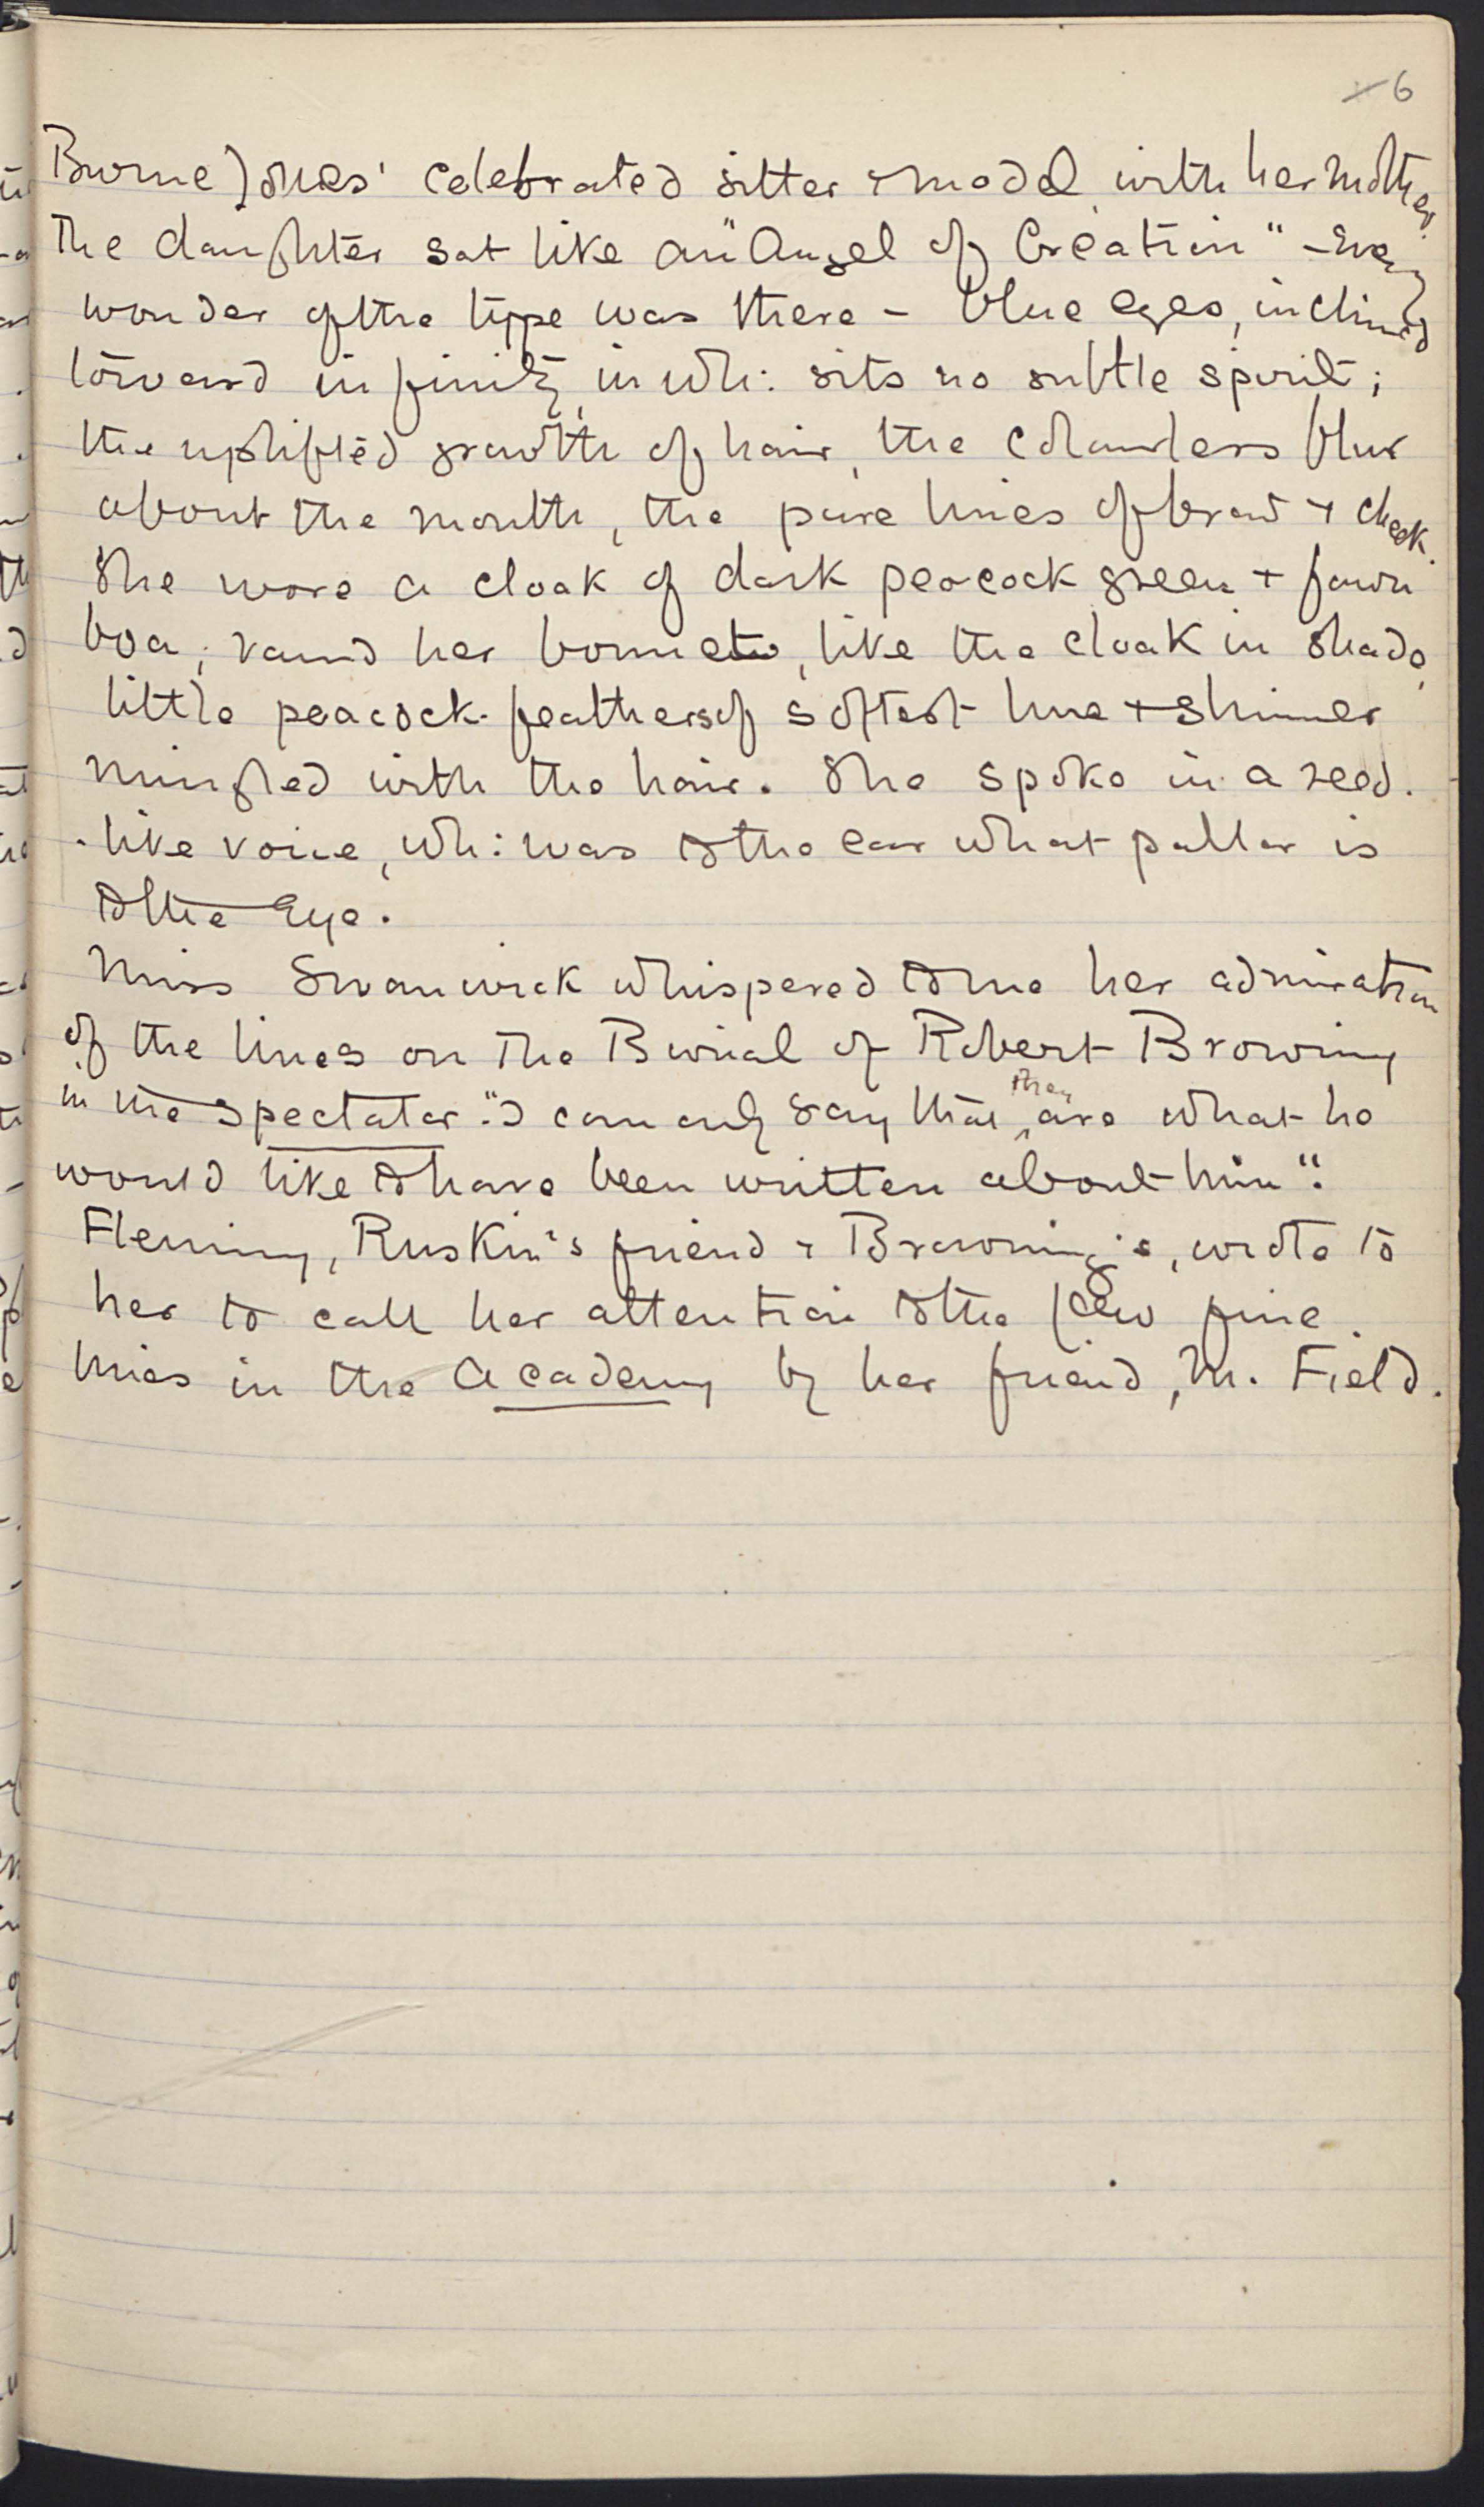 6
Burne Jones' celebrated sitter & model with her mother.
The daughter sat like an "Angel of Creation" - Every
wonder of the type was there - blue eyes, inclined
toward infinity, in wh: sits no subtle spirit;
the uplifted growth of hair, the colourless blur
about the mouth, the pure lines of brow & cheek.
She wore a cloak of dark peacock green & fawn
boa; round her bonnet, like the cloak in shade,
little peacock-feathers of softest hue & shimmer
mingled with the hair. She spoke in a reed-
-like voice, wh: was to the ear what pallor is
to the Eye.
Miss Swanwick whispered to me her admiration
of the lines on The Burial of Robert Browning
in the Spectator. "I can only say that they are what he
would like to have been written about him".
Fleming, Ruskin's friend & Browning's, wrote to
her to call her attention to the few fine
lines in the Academy by her friend, Mr. Field.